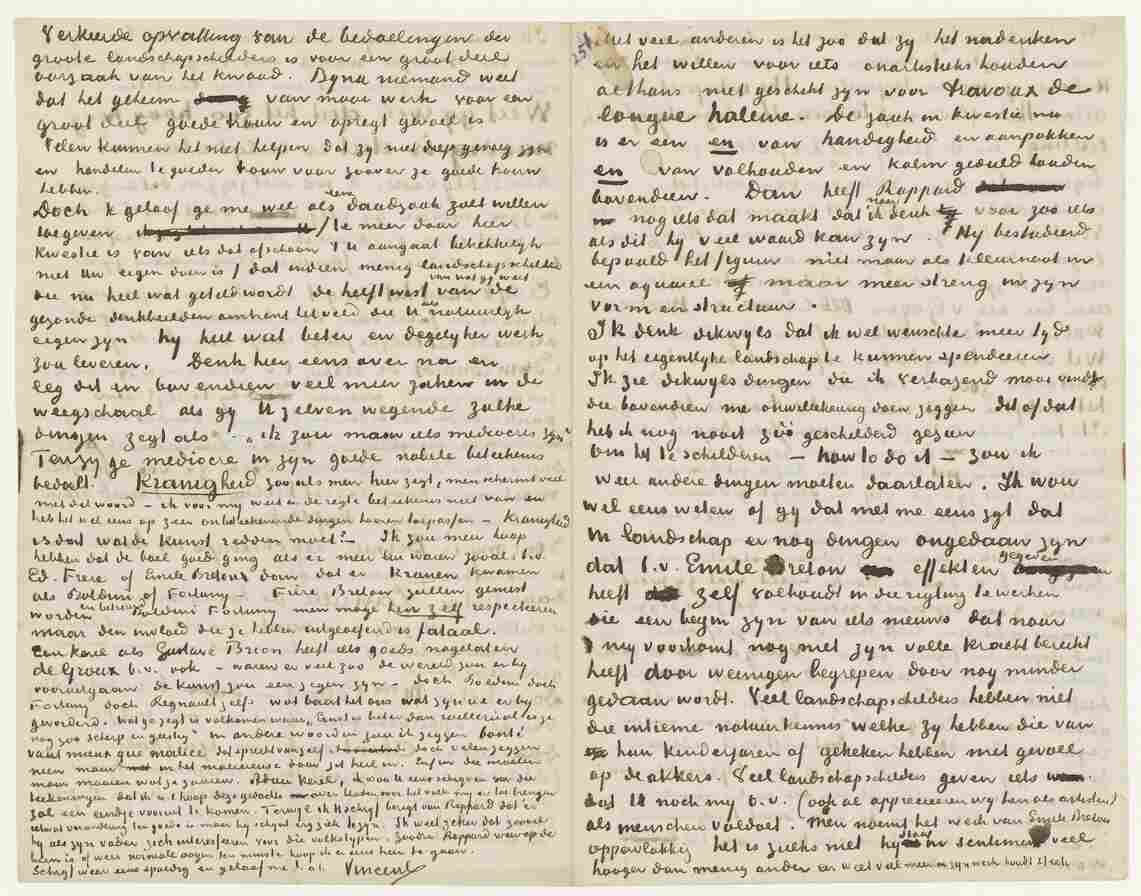 Verkeerde opvatting van de bedoelingen der
groote landschapschilders is voor een groot deel
oorzaak van het kwaad. Byna niemand weet
dat het geheim van mooi werk voor een
groot deel goede trouw en opregt gevoel is
Velen kunnen het niet helpen dat zy niet diep genoeg zyn
en handelen te goeder trouw voor zoover ze goede trouw
hebben.
Doch ik geloof ge me wel als daadzaak zult willen
toegeven / te meer daar hier
kwestie is van iets dat ofschoon 't U aangaat betrekkelyk
niet Uw eigen doen is / dat indien menig landschapschilder
die nu heel wat geteld wordt de helft wist van de
van wat gy weet
gezonde denkbeelden omtrent het veld die U als natuurlyk
eigen zyn hy heel wat beter en degelyker werk
zou leveren. Denk hier eens over na en
leg dit en bovendien veel meer zaken in de
weegschaal als gy U zelven wegende zulke
dingen zegt als "ik zou maar iets mediocres zyn"
Tenzy ge mediocre in zyn goede nobele beteekenis
bedoelt. Kranigheid zooals men hier zegt, men schermt veel
met dat woord – ik voor my weet er de regte beteekenis niet van en
heb het wel eens op zeer onbeteekenende dingen hooren toepassen – kranigheid
is dat wat de kunst redden moet? Ik zou meer hoop
hebben dat de boel goed ging als er meer lui waren zooals b.v.
Ed. Frere of Emile Breton dan dat er kranen kwamen
als Boldini of Fortuny – Frère Breton zullen gemist
worden en betreurd Boldini Fortuny men moge hen zelf respecteeren
maar den invloed die ze hebben uitgeoefend is fataal.
Een kerel als Gustave Brion heeft iets goeds nagelaten
de Groux b.v. ook – waren er veel zoo de wereld zou er by
vooruitgaan de kunst zou een zegen zyn – doch Boldini doch
Fortuny doch Regnault zelfs wat baat het ons wat zyn we er by
gevorderd. Wat ge zegt is volkomen waar, Ernst is beter dan raillerie al is ze
nog zoo scherp en geestig. in andere woorden zou ik zeggen bonté
vaut mieux que malice dat spreekt van zelf doch velen zeggen
neen maar in het malicieuse daar zit heil in. Enfin die moeten
maar maaien wat ze zaaien. Adieu kerel,
teekeningen dat ik hoop deze gedachte over bladen voor het volk my er toe brengen
zal een eindje vooruit te komen. Terwyl ik U schryf berigt van Rappard dat er
ietwat verandering ten goede is maar hy schynt erg ziek te zyn. Ik weet zeker dat zoowel
hy als zyn vader zich interesseeren voor die volkstypen. Zoodra Rappard weer op de
been is of weer normale oogen ten minste hoop ik er eens heen te gaan.
Schryf weer eens spoedig en geloof me t.à.t. Vincent
Met veel anderen is het zoo dat zy het nadenken
en het willen voor iets onartistieks houden
althans niet geschikt zyn voor travaux de
longue haleine. De zaak in kwestie nu
is er een en van handigheid en aanpakken
en van volhouden en kalm geduld houden
bovendien. Dan heeft Rappard
nog iets dat maakt dat ik denk voor zoo iets
als dit hy veel waard kan zyn. Hy bestudeerd
bepaald het figuur niet maar als kleurnoot in
een aquarel maar meer streng in zyn
vorm en structuur.
Ik denk dikwyls dat ik wel wenschte meer tyd
op het eigentlyke landschap te kunnen spendeeren.
Ik zie dikwyls dingen die ik verbazend mooi vindt
die bovendien me onwillekeurig doen zeggen dit of dat
heb ik nog nooit zóó geschilderd gezien
Om hy te schilderen – how to do it – zou ik
weer andere dingen moeten daarlaten. Ik wou
wel eens weten of gy dat met me eens zyt dat
in landschap er nog dingen ongedaan zyn
dat b.v. Emile Breton effekten gegeven
heeft zelf volhoudt in die rigting te werken
die een begin zyn van iets nieuws dat naar
my voorkomt nog niet zyn volle kracht bereikt
heeft door weinigen begrepen door nog minder
gedaan wordt. Veel landschapschilders hebben niet
die intieme natuurkennis welke zy hebben die van
hun kinderjaren af gekeken hebben met gevoel
op de akkers. Veel landschapschilders geven iets
dat U noch my b.v. (ook al apprecieeren wy hen als artisten)
als menschen voldoet. Men noemt het werk van Emile Breton
oppervlakkig het is zulks niet hy staat in sentiment veel
hooger dan menig ander en weet veel meer en zyn werk houdt zich